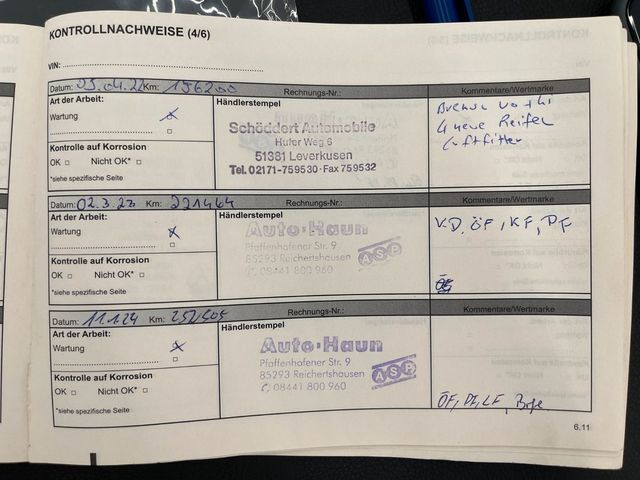 KONTROLLNACHWEISE (4/6)
VIN:
Datum: 05.04.22 Km: 196200 Rechnungs-Nr.: Kommentare/Wertmarke
Art der Arbeit:
Wartung
Kontrolle auf Korrosion
OK □ Nicht OK* □
*siehe spezifische Seite
Händlerstempel
Schöddert Automobile
Hufer Weg 6
51381 Leverkusen
Tel. 02171-759530 · Fax 759532
4 neue Reifen
Luftfilter
Datum: 02.3.23 Km: 221464 Rechnungs-Nr.: Kommentare/Wertmarke
Art der Arbeit:
Wartung
Kontrolle auf Korrosion
OK □ Nicht OK* □
*siehe spezifische Seite
Händlerstempel
Auto-Haun
Pfaffenhofener Str. 9
85293 Reichertshausen
✆ 08441 800 960
ASP
KD, ÖF, KF, PF
Datum: 11.1.24 Km: 252505 Rechnungs-Nr.: Kommentare/Wertmarke
Art der Arbeit:
Wartung
Kontrolle auf Korrosion
OK □ Nicht OK* □
*siehe spezifische Seite
Händlerstempel
Auto-Haun
Pfaffenhofener Str. 9
85293 Reichertshausen
✆ 08441 800 960
ASP
ÖF, PF, LF,
6.11